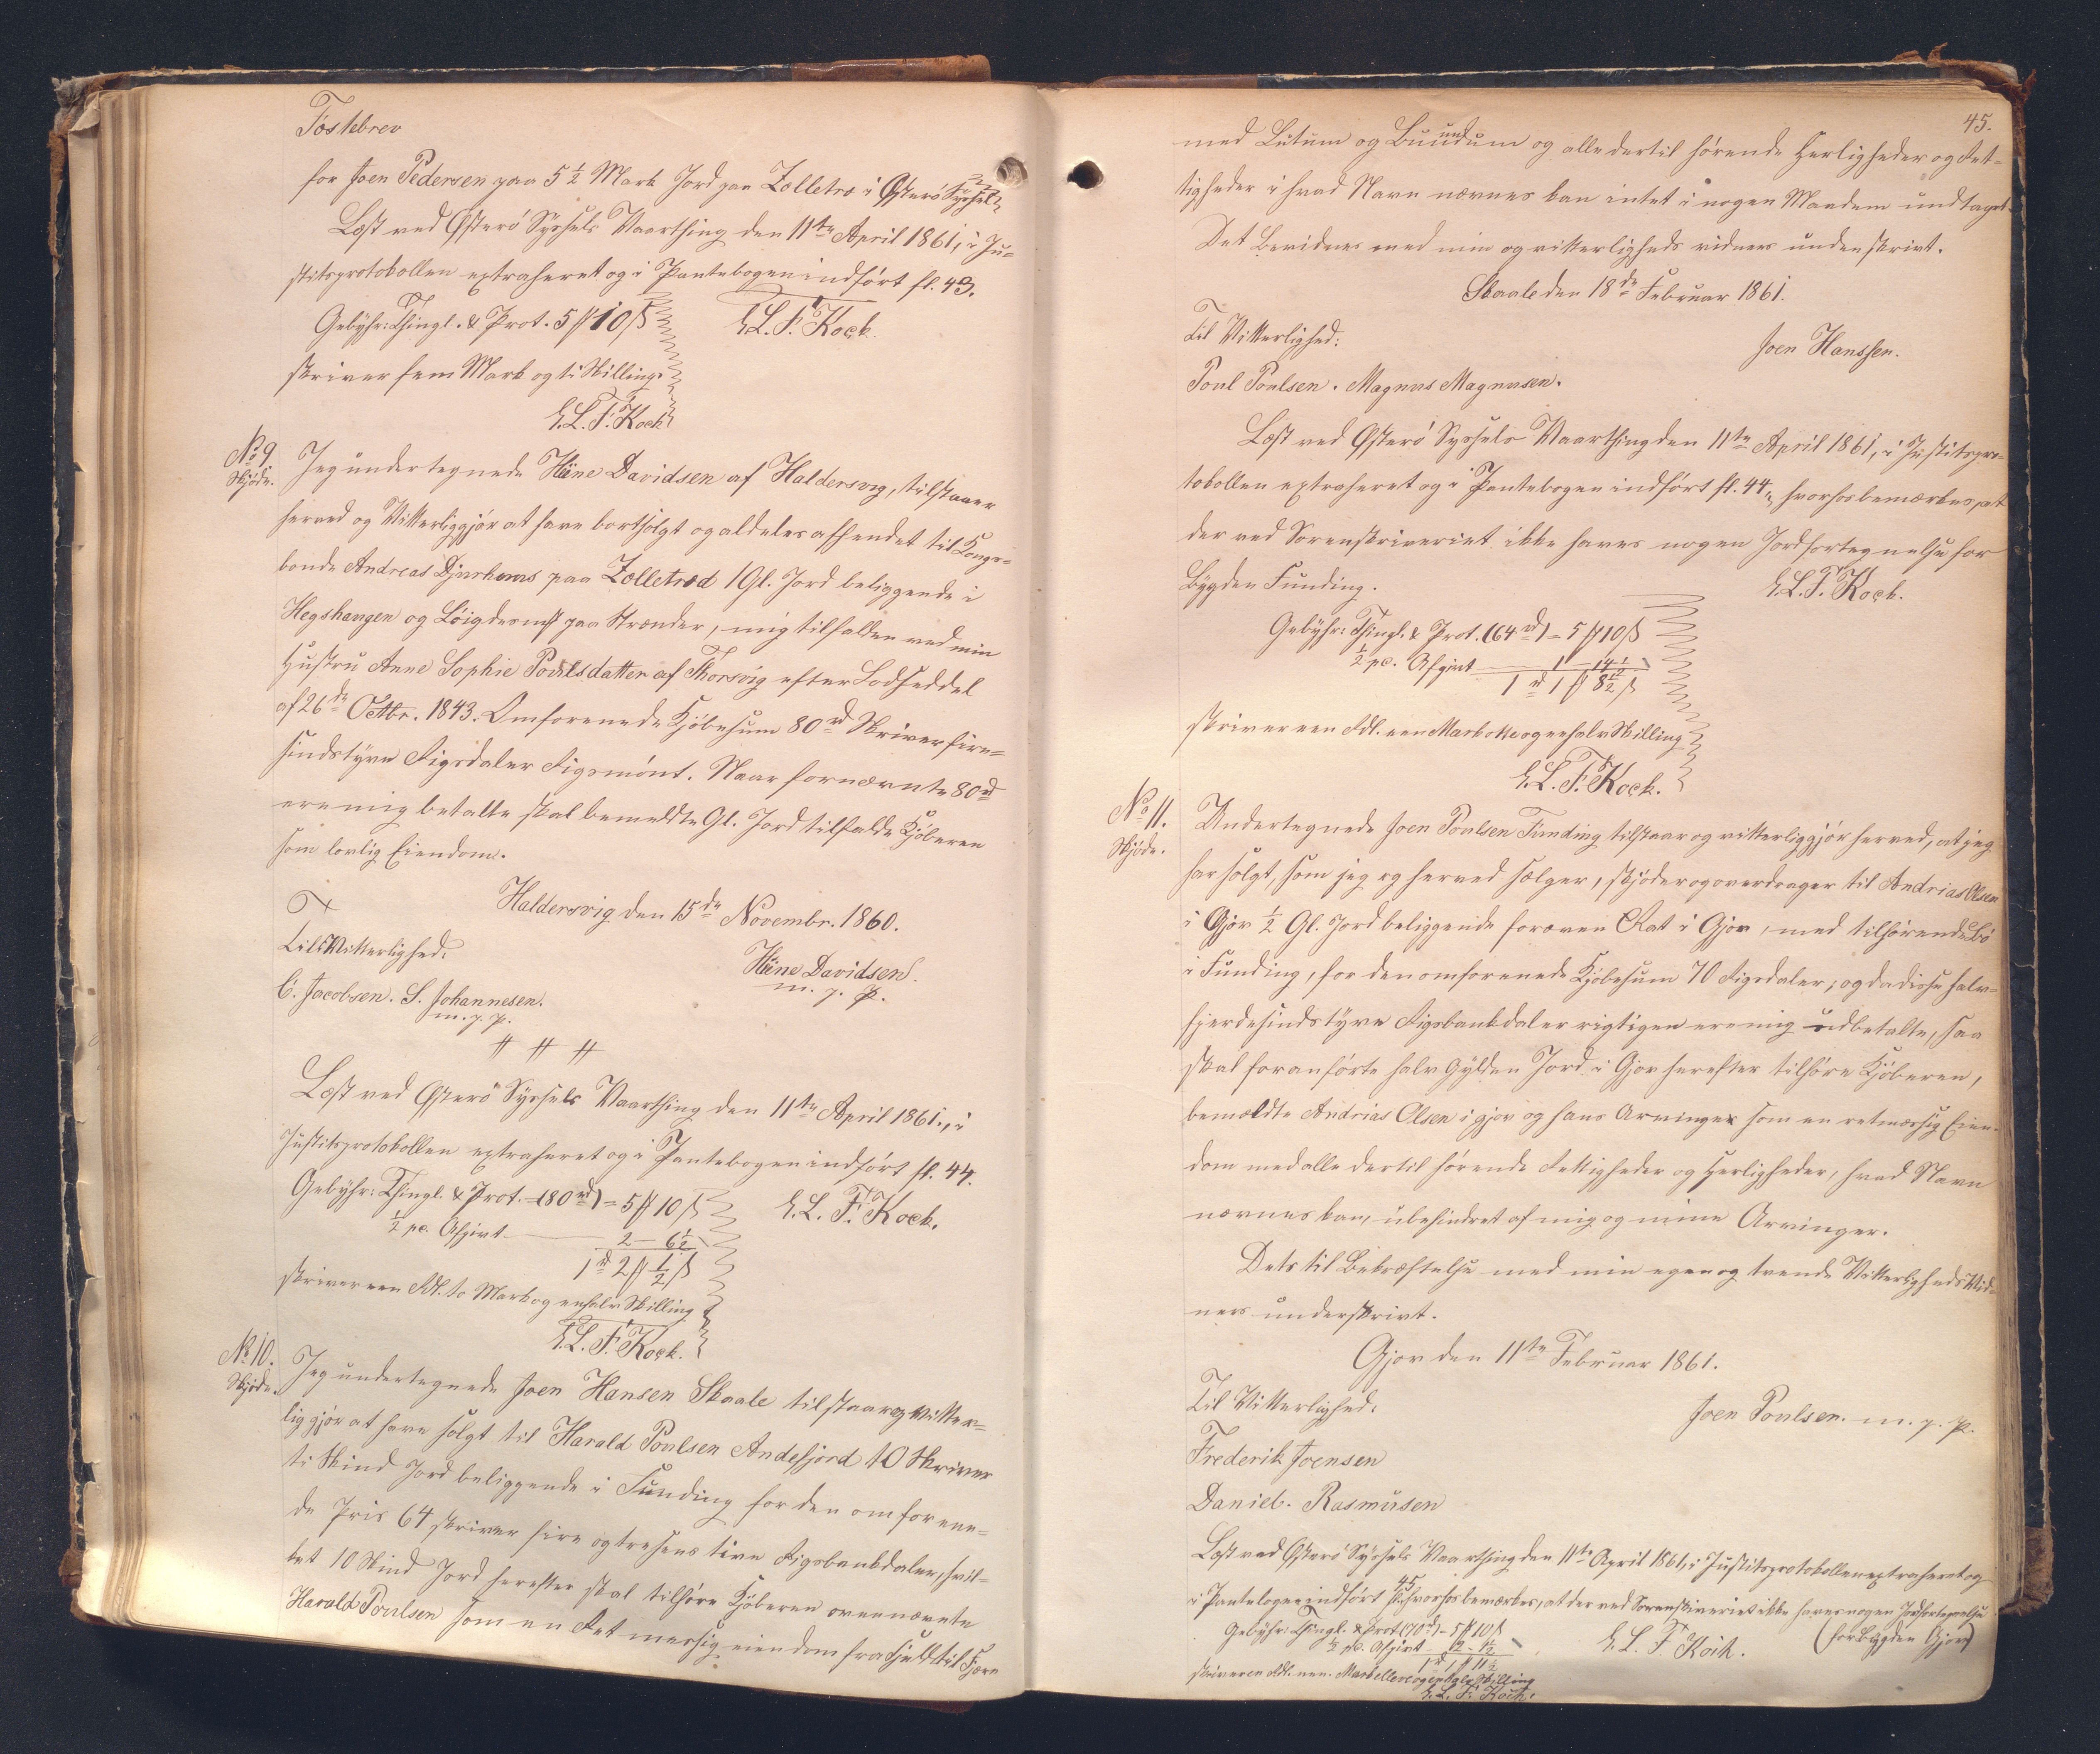 Fæstebrev
for Joen Pedersen paa 5 1/2 Mark Jord paa Zelletrø i Østerø Syssel
Læst ved Østerø Syssels Vaarthing den 11te April 1861, i Ju=
stitsprotokollen extraheret og i Pantebogen indført fl. 43.
Gebyhr: Thingl. & Prot. 5 ₻ 10 ß
E. L. F. Koch.
skriver fem Mark og ti Skilling.
E. L. F. Koch
No 9
Skjøde.
Jeg undertegnede Hüne Davidsen af Haldersvig, tilstaaer
herved og Vitterliggjør at have bortsolgt og aldeles afhendet til Kongs=
bonde Andreas Djurhuus paa Zelletræd 1 Gl. Jord beliggende i
Hegshangen og paa Strænder, mig tilfalden ved min
Hustru Anne Sophie Poulsdatter af Thorsvig efter Lodseddel
af 26de Octbr. 1843. Omforenede Kjøbesum 80 rd Skriver fire=
sindstyve Rigsdaler Rigsmønt. Naar fornævnte 80 rd
ere mig betalte skal bemeldte Gl. Jord tilfalde Kjøberen
som lovlig Eiendom.
Haldersvig den 15de Novembr. 1860.
Til Vitterlighed:
Hüne Davidsen.
m. p. p.
C. Jacobsen. S. Johannesen.
m. p. p.
Læst ved Østerø Syssels Vaarthing den 11te April 1861., i
Justitsprotokollen extraheret og i Pantebogen indført fl. 44.
Gebyhr: Thingl. & Prot. (80 rd) = 5 ₻ 10 ß
E. L. F. Koch.
1/2 pc. Afgivt 2 – 6 1/2
1 rd 2 ₻ 1/2 ß
skriver een Rdl. to Mark og en halv Skilling
E. L. F. Koch.
No 10.
Skjøde.
Jeg undertegnede Joen Hansen Skaale tilstaar og Vitter=
liggjør at have solgt til Harald Poulsen Andefjord 10 Skriver
ti Skind Jord beliggende i Funding for den omforene=
de Pris 64 skriver fire og tresens tive Rigsbankdaler, hvil=
ket 10 Skind Jord herefter skal tilhøre Kjøberen ovennævnte
Harald Poulsen som en Ret mæssig eiendom fra Fjeld til Fjære
45.
med Lutum og Lunndum og alle dertil hørende Herligheder og Ret=
tigheder i hvad Navn nævnes kan intet i nogen Maadem undtaget.
Det Bevidnes med min og vitterligheds vidners underskrivt.
Skaale den 18de Februar 1861.
Til Vitterlighed:
Joen Hanssen.
Poul Poulsen. Magnus Magnusen.
Læst ved Østerø Syssels Vaarthing den 11te April 1861, i Justitspro=
tokollen extraheret og i Pantebogen indført fl. 44, hvorhos bemærkes, at
der ved Sorenskriveriet ikke haves nogen Jordfortegnelse for
Bygden Funding.
E. L. F. Koch.
Gebyhr: Thingl. & Prot. (64 rd) = 5 ₻ 10 ß
1/2 pc. Afgivt 1 – 14 1/2
1 rd 1 ₻ 8 1/2 ß
skriver een Rdl. een Mark otte og en halv Skilling
E. L. F. Koch.
No 11.
Skjøde.
Undertegnede Joen Poulsen Funding tilstaar og vitterliggjør herved, at jeg
har solgt, som jeg og herved sælger, skjøder og overdrager til Andrias Olsen
i Gjov 1/2 Gl. Jord beliggende foroven Rat i Gjov, med tilhørende Bø
i Funding, for den omforenede Kjøbesum 70 Rigsdaler; og da disse halv=
fjerdesindstyve Rigsbankdaler rigtigen ere mig udbetalte, saa
skal foranførte halv Gylden Jord i Gjov herefter tilhøre Kjøberen,
bemældte Andrias Olsen i gjov og hans Arvinger som en retmæssig Eien=
dom med alle dertil hørende Rettigheder og Herligheder, hvad Navn
nævnes kan, ubehindret af mig og mine Arvinger.
Dets til Bekræftelse med min egen og tvende Vitterligheds Vid=
ners underskrivt.
Gjov den 11te Februar 1861.
Til Vitterlighed:
Joen Poulsen. m. p. p.
Frederik Joensen
Daniel. Rasmusen
Læst ved Østerø Syssels Vaarthing den 11te April 1861, i Justitsprotokollen extraheret og
i Pantebogen indført fl. 45 hvorhos bemærkes, at der ved Sorenskriveriet ikke haves nogen Jordfortegnelse
(for Bygden Gjov)
Gebyhr: Thingl. & Prot (70 rd) – 5 ₻ 10 ß
E. L. F. Koch.
1/2 pc. Afgivt 2 – 1 1/2
1 rd 1 ₻ 11 1/2
skriver en Rdl. een Mark elleve og en halv Skilling
E. L. F. Koch.